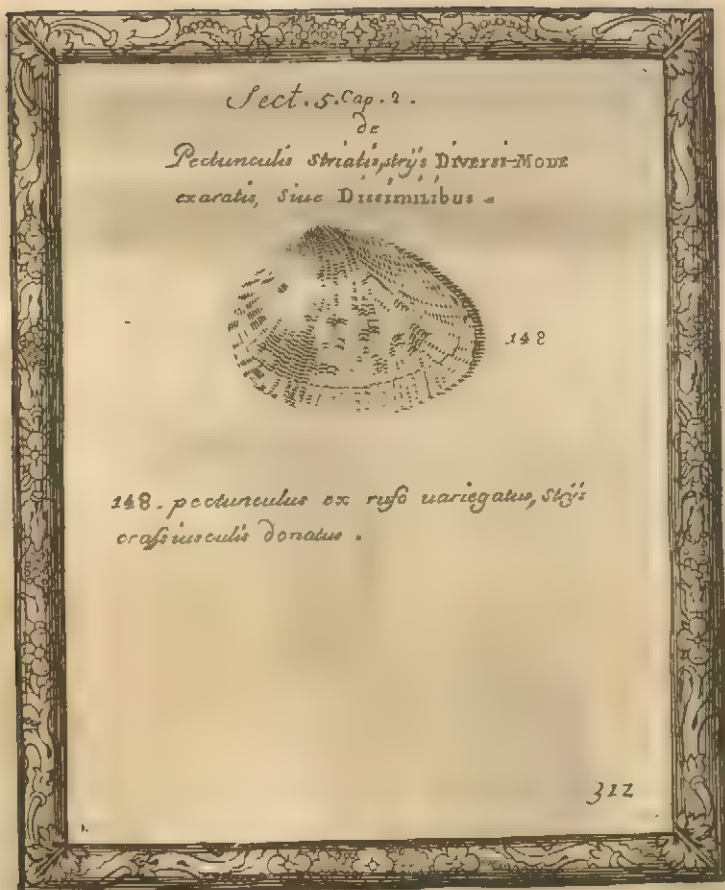 Sect. 5. Cap. 2.
de
Pectunculis striatis, strijs Diversi-Mode
exaratis, siue Dissimilibus.
148
148. pectunculus ex rufo uariegatus, strijs
crassiusculis donatus.
312